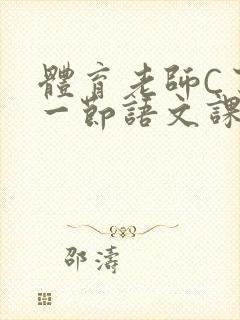 體育老師C
一節語文課
邵濤